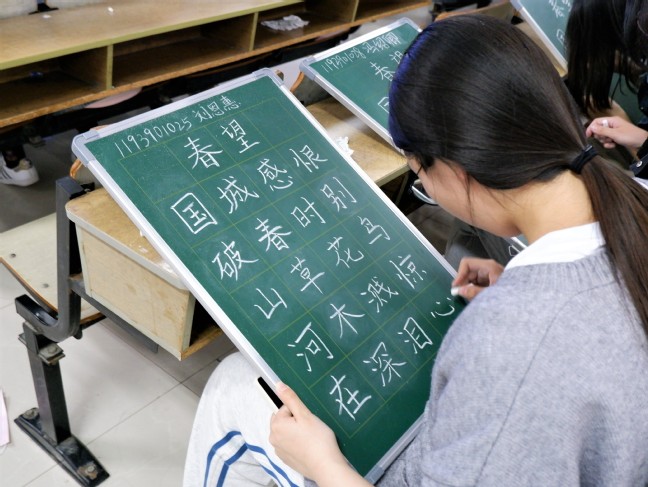 1193901025 刘恩惠
春望
国破山河在
城春草木深
感时花溅泪
恨别鸟惊心
春
国